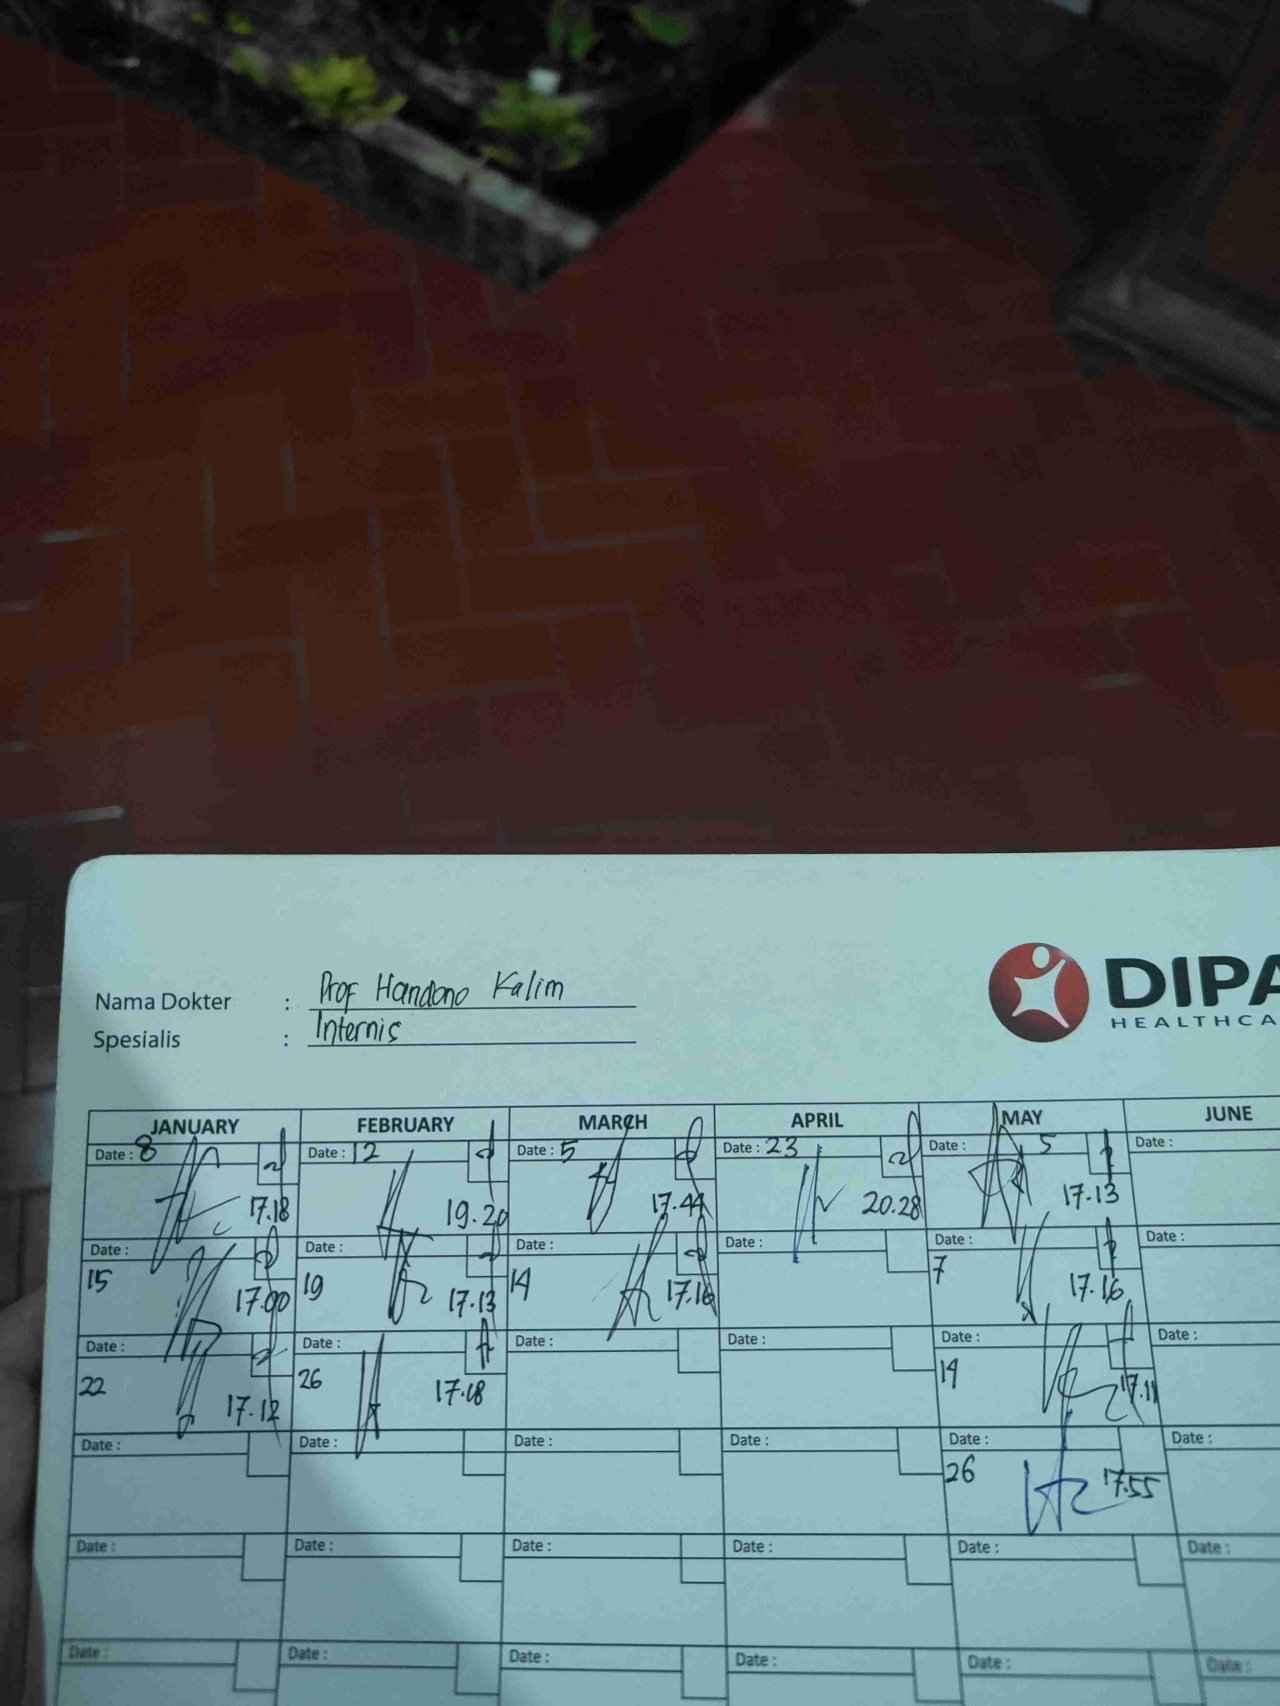 Nama Dokter : Prof Handono Kalim
Spesialis : Internis
DIPA
HEALTHCA
JANUARY FEBRUARY MARCH APRIL MAY JUNE
Date : 8 Date : 12 Date : 5 Date : 23 Date : 5 Date :
17.18 19.20 17.44 20.28 17.13
Date : Date : Date : Date : Date : Date :
15 17.00 19 17.13 14 17.16 7 17.16
Date : Date : Date : Date : Date : Date :
22 17.12 26 17.08 19 17.11
Date : Date : Date : Date : Date : Date :
26 17.55
Date : Date : Date : Date : Date : Date :
Date : Date : Date : Date : Date : Date :